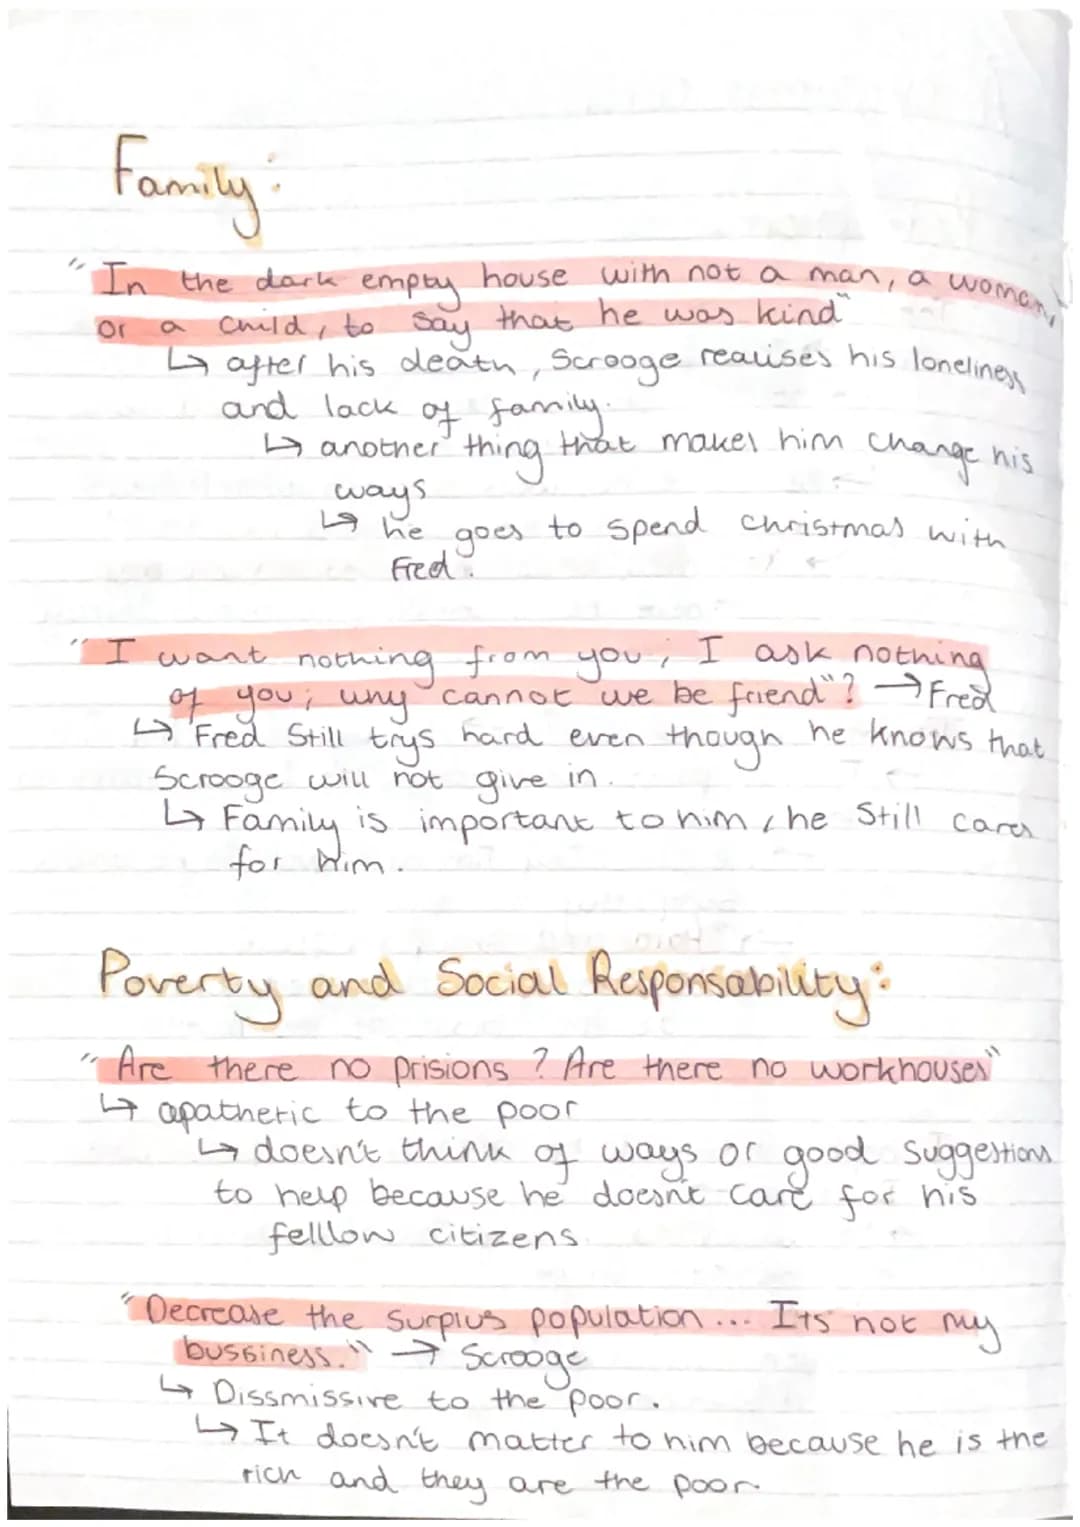 Family:
"In the dark empty house with not a man, a woman,
or a child, to say that he was kind"
↳ after his death, Scrooge realises his loneliness
and lack of family.
↳ another thing that makes him change his
ways
↳ he goes to spend christmas with
Fred.
"I want nothing from you; I ask nothing
of you; why cannot we be friend"? → Fred
↳ Fred Still trys hard even though he knows that
Scrooge will not give in.
↳ Family is important to him, he Still cares
for him.
Poverty and Social Responsability:
"Are there no prisions? Are there no workhouses"
↳ apathetic to the poor
↳ doesn't think of ways or good suggestions
to help because he doesn't care for his
felllow citizens
"Decrease the surplus population... Its not my
bussiness." → Scrooge
↳ Dissmissive to the poor.
↳ It doesn't matter to him because he is the
rich and they are the poor.